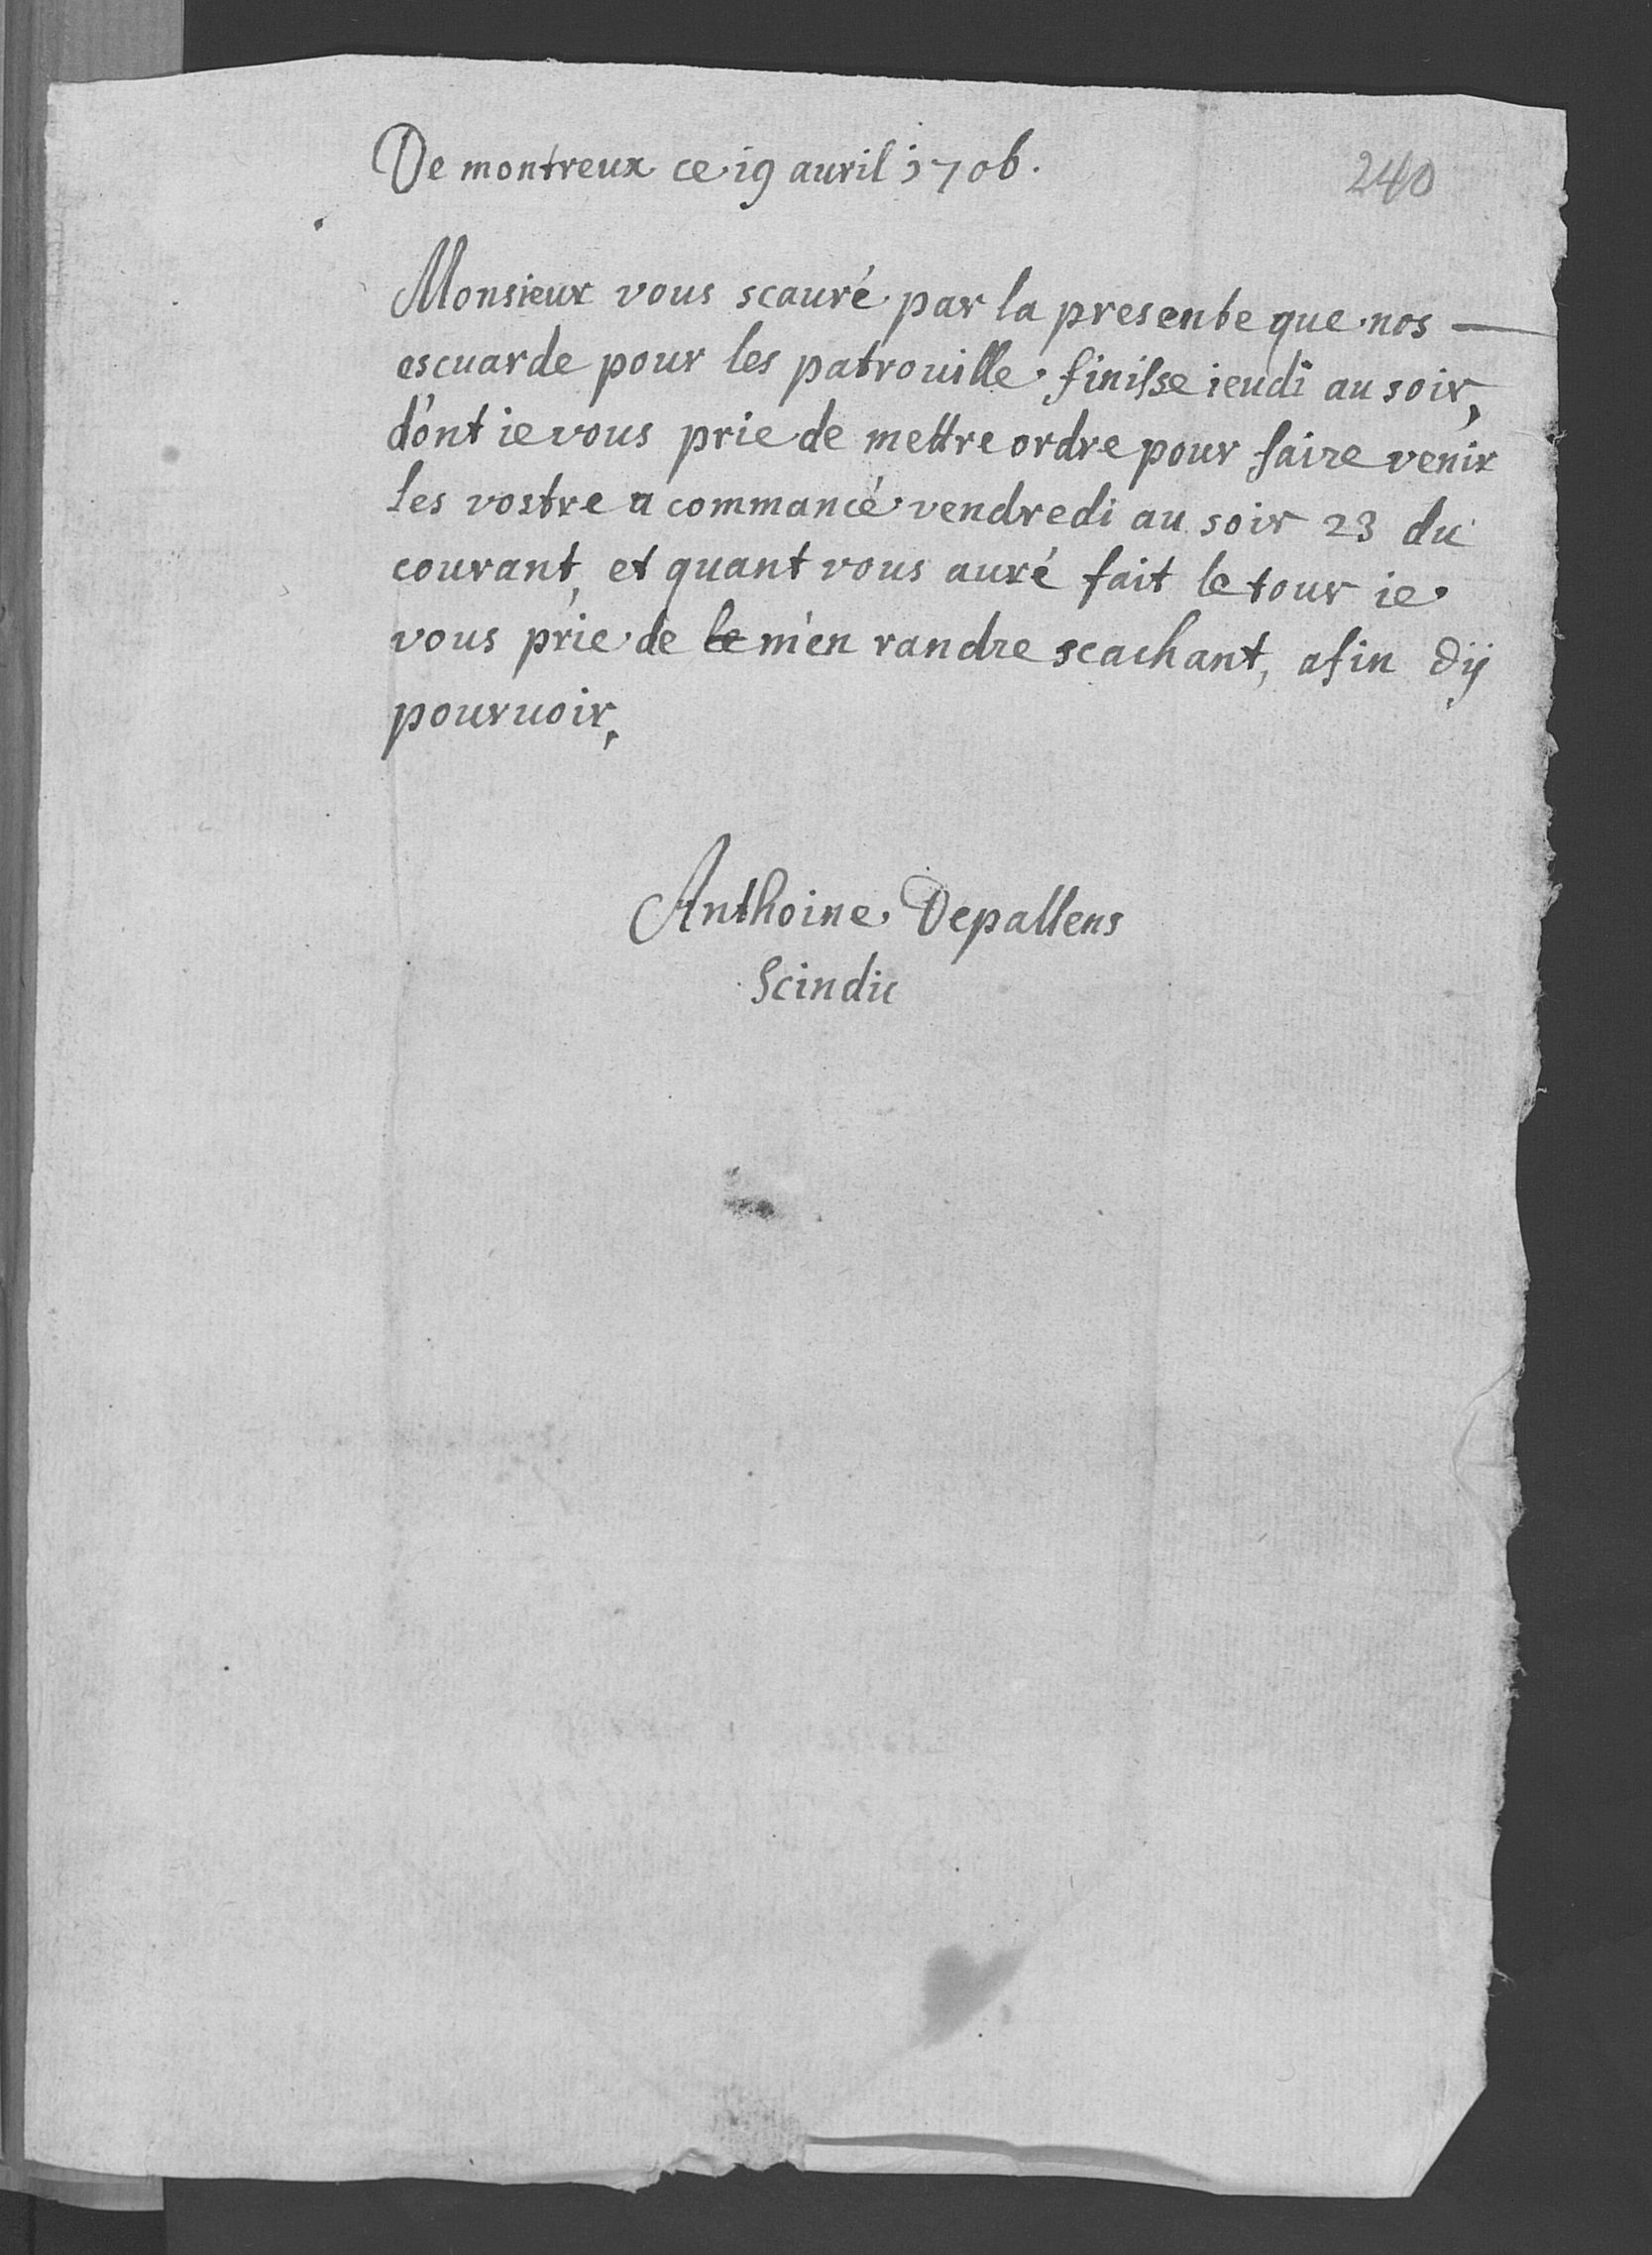 De montreux ce 19 auril 1706.
240
Monsieur vous scauré par la presente que nos —
escuarde pour les patrouille finisse ieudi au soir,
d'ont ie vous prie de mettre ordre pour faire venir
les vostre a commancé vendredi au soir 23 du
courant, et quant vous auré fait le tour ie
vous prie de le m'en randre scachant, afin dÿ
pouruoir,
Anthoine Depallens
Scindic